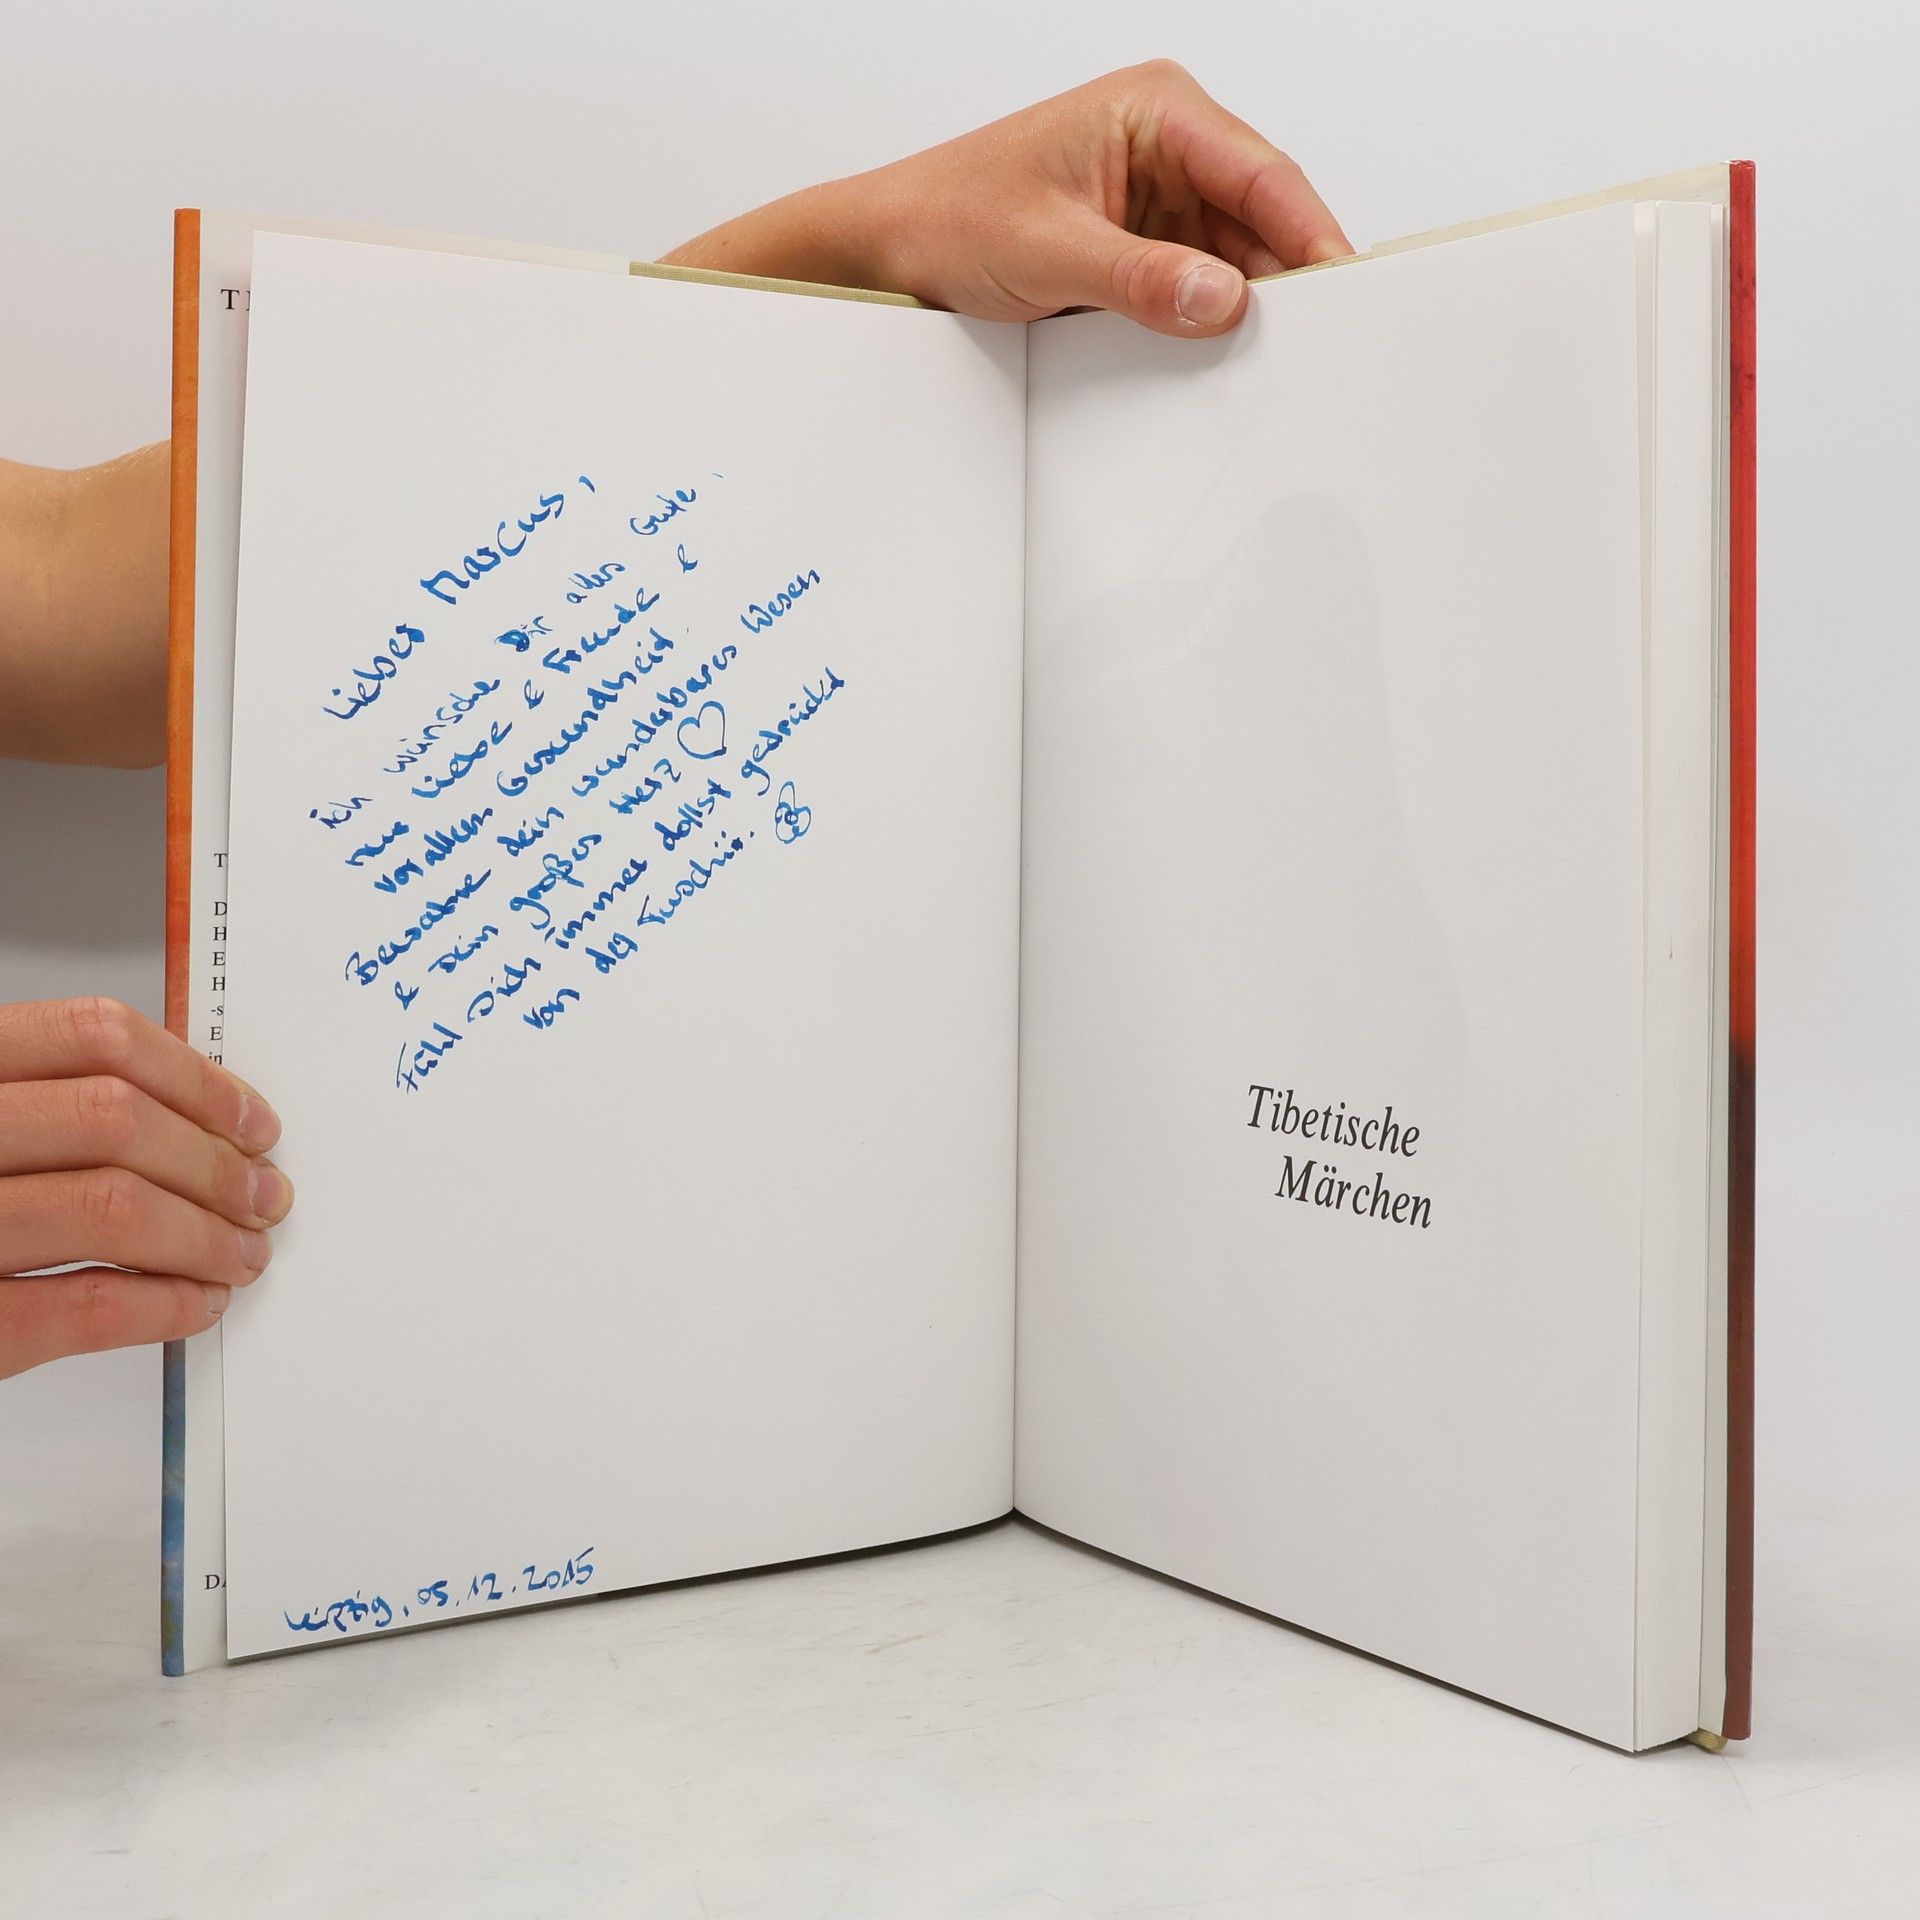 Lieber Marcus,
ich wünsche Dir alles Gute,
nur Liebe & Freude &
vor allem Gesundheit.
Bewahre dein wunderbares Wesen
& Dein großes Herz ♡
Fühl Dich immer dollst gedrückt
von der Tuschii.
Leipzig, 05.12.2015
Tibetische
Märchen
T
D
H
E
H
-s
E
in